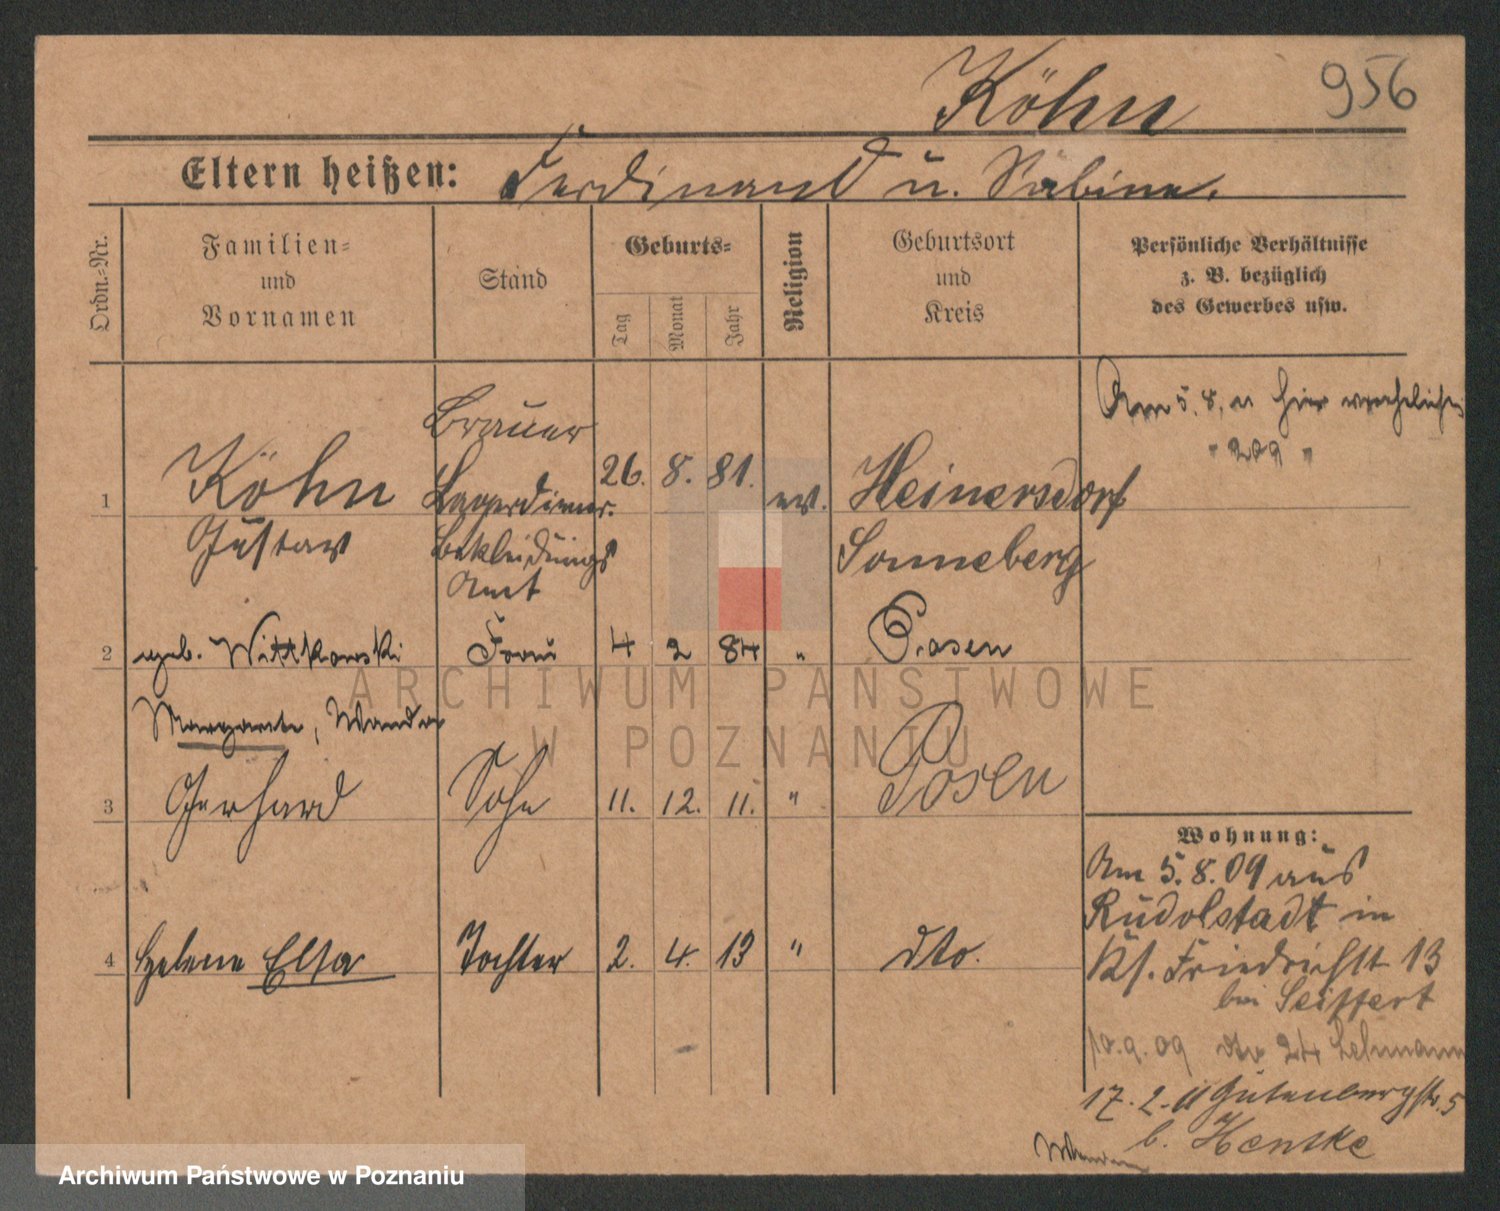 Köhn
956
Eltern heißen: Ferdinand u. Sabine.
Ordn.-Nr.
Familien-
und
Vornamen
Stand
Geburts-
Tag
Monat
Jahr
Religion
Geburtsort
und
Kreis
Persönliche Verhältnisse
z. B. bezüglich
des Gewerbes usw.
Am 5. 8. 11 hier verehelicht
" 209 "
1 Köhn Gustav
Brauer
Lagerdiener.
Bekleidungs
Amt
26. 8. 81. ev.
Heinersdorf
Sonneberg
2 geb. Wittkowski Frau 4 2 84 " Posen
Margarete, Wanda
3 Gerhard Sohn 11. 12. 11. " Posen
4 Helene Elsa Tochter 2. 4. 13 " dto.
Wohnung:
Am 5. 8. 09 aus
Rudolstadt in
Ks. Friedrichstr 13
bei Seiffert
10.9.09 dto 24 Lehmann
17. 2. 11 Gutenbergstr. 5
b. Hentke
ARCHIWUM PAŃSTWOWE
W POZNANIU
Archiwum Państwowe w Poznaniu